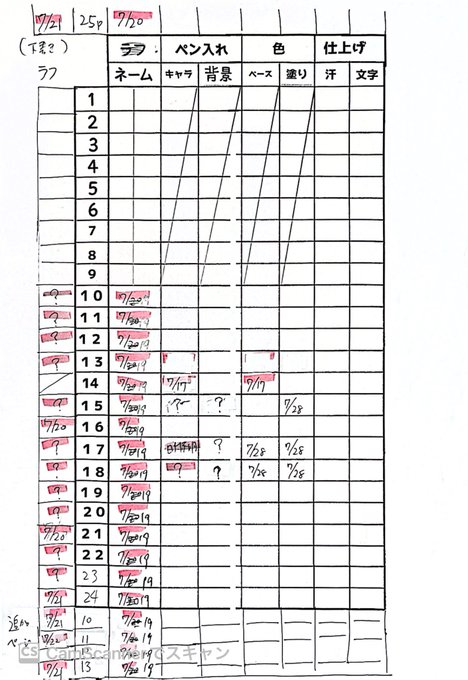 7/21 25p 7/20
(下書き) ラフ ペン入れ 色 仕上げ
ラフ ネーム キャラ 背景 ベース 塗り 汗 文字
1
2
3
4
5
6
7
8
9
? 10 7/20 19
? 11 7/20 19
? 12 7/20 19
? 13 7/20 19
14 7/20 19 7/17 7/17
? 15 7/20 19 ? ? 7/28
7/20 16 7/20 19
? 17 7/20 19 ? 7/28 7/28
? 18 7/20 19 ? ? 7/28 7/28
? 19 7/20 19
? 20 7/20 19
7/20 21 7/20 19
? 22 7/20 19
? 23 7/20 19
7/21 24 7/20 19
追加 7/21 10 7/20 19
ページ 7/22 11 7/20 19
CS CamScannerでスキャン
7/21 13 7/20 19